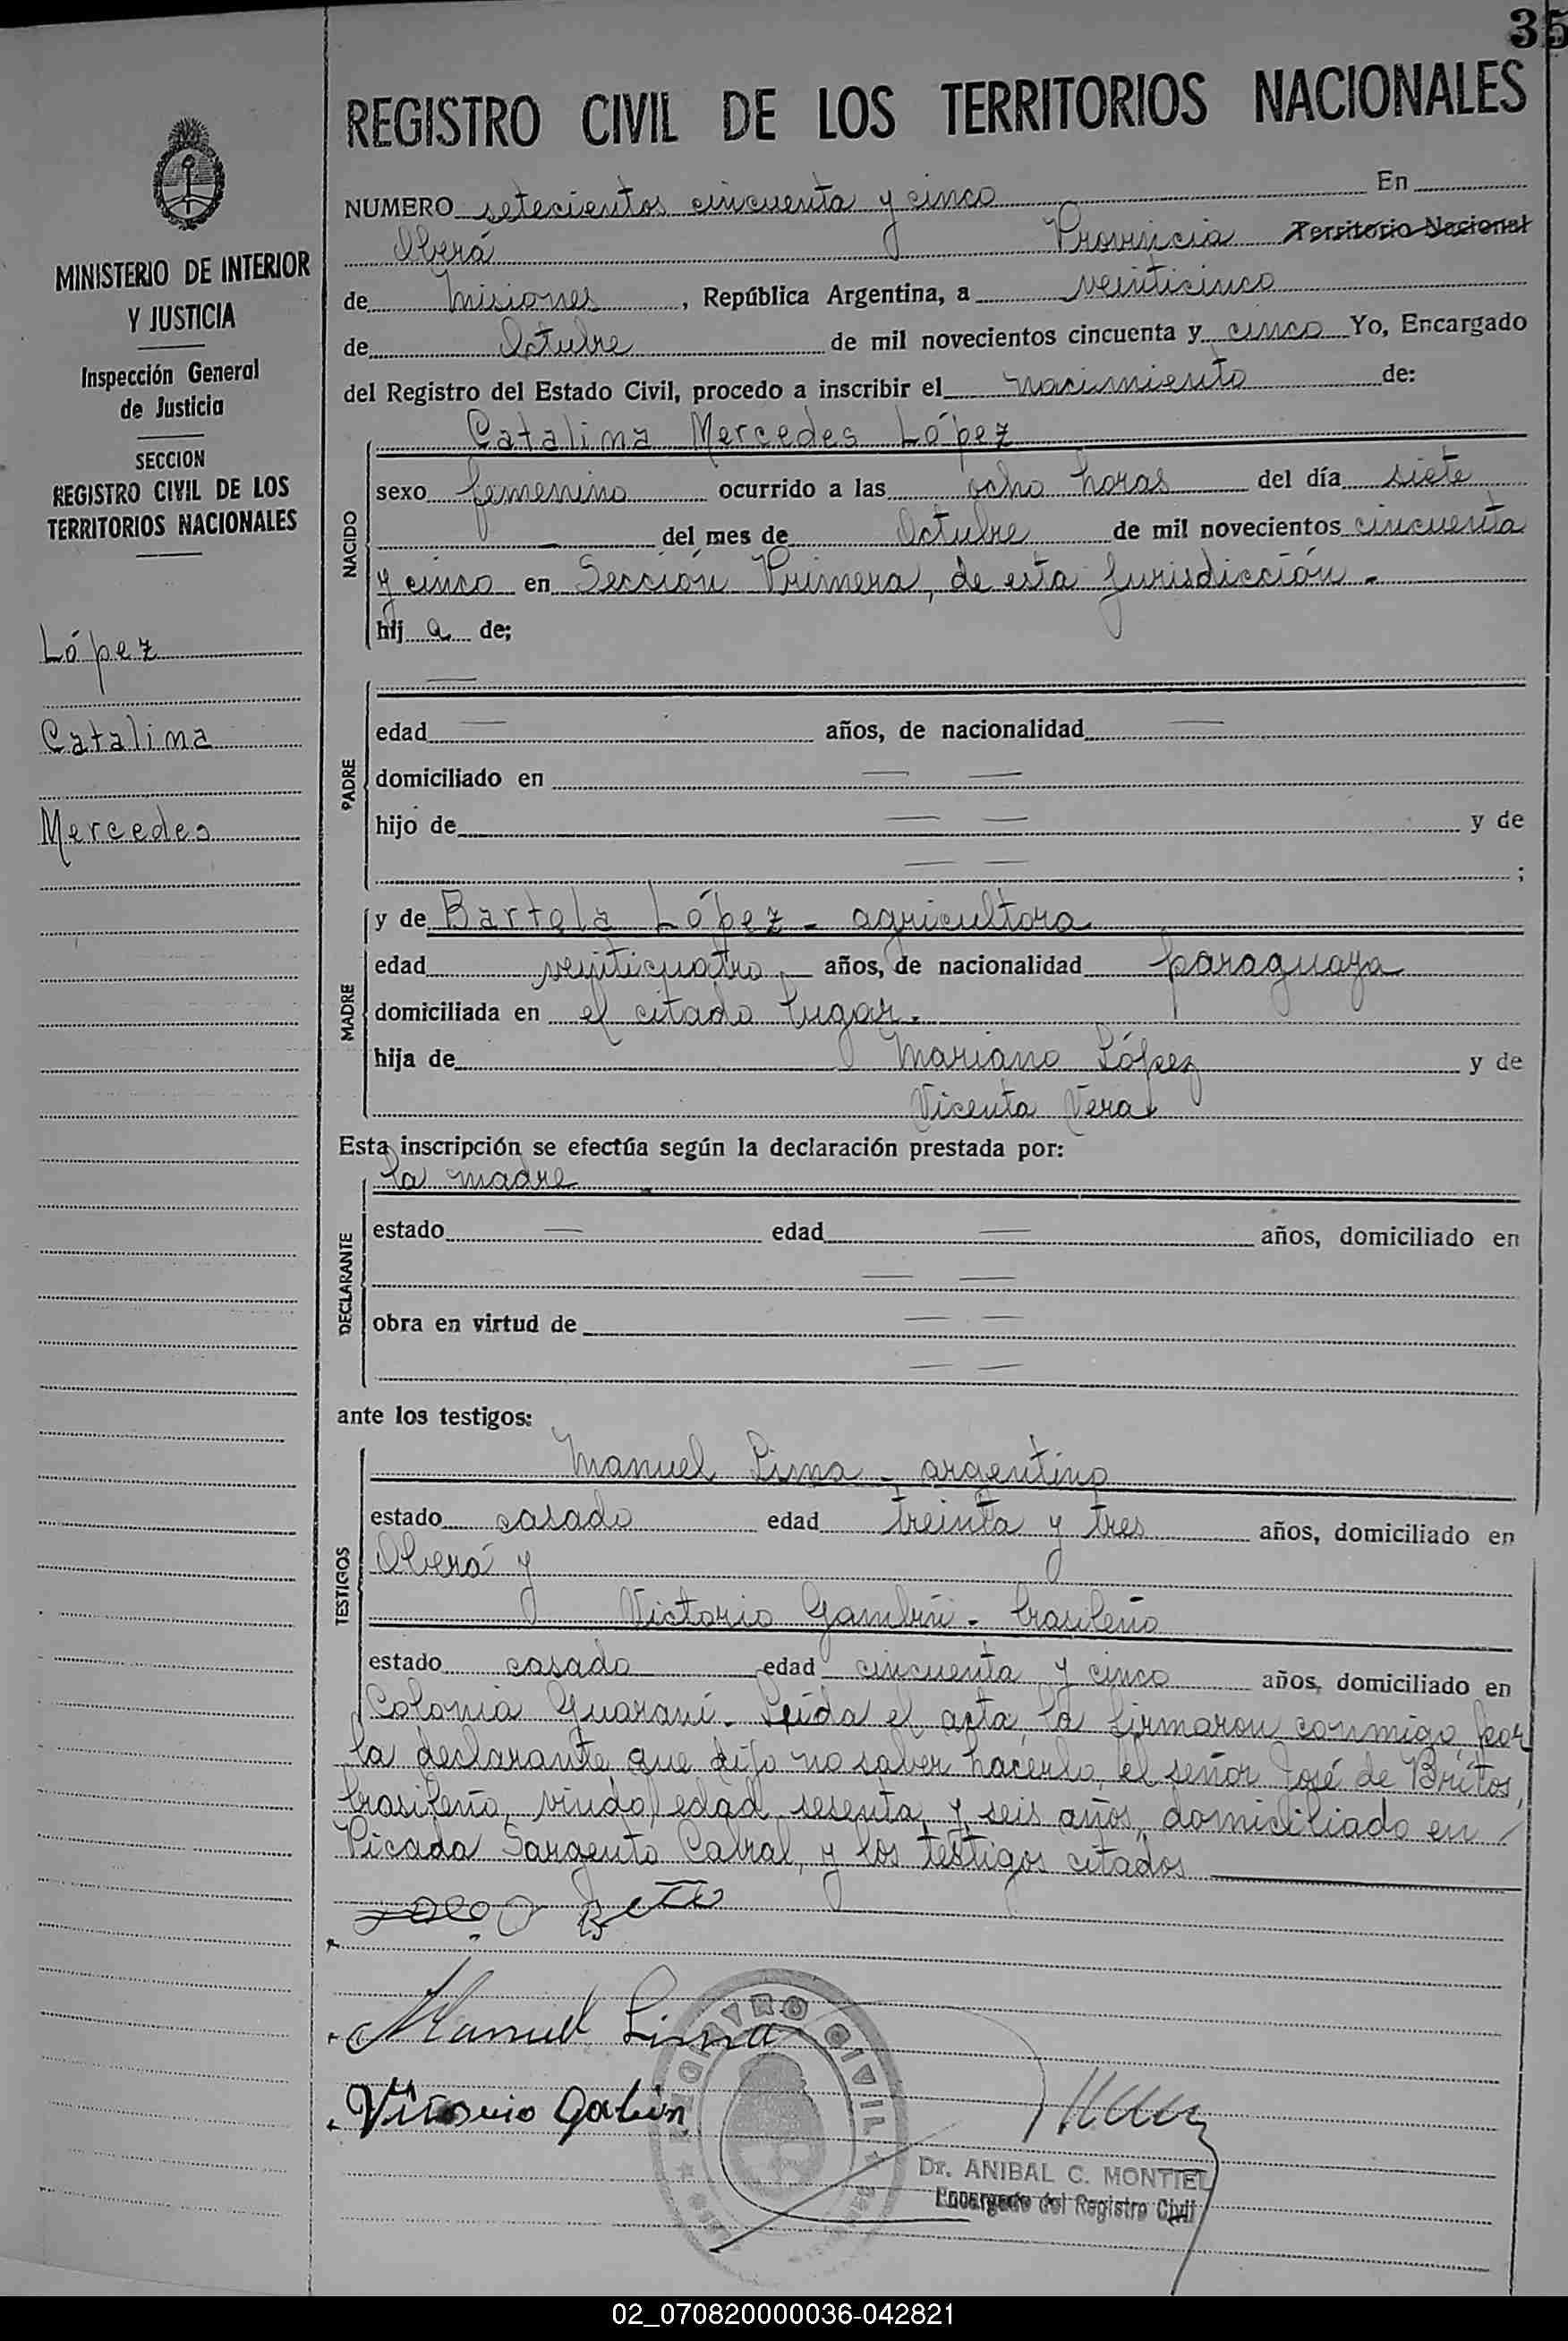 35
REGISTRO CIVIL DE LOS TERRITORIOS NACIONALES
MINISTERIO DE INTERIOR
Y JUSTICIA
Inspección General
de Justicia
SECCION
REGISTRO CIVIL DE LOS
TERRITORIOS NACIONALES
López
Catalina
Mercedes
NUMERO setecientos cincuenta y cinco En
Oberá Provincia Territorio Nacional
de Misiones, República Argentina, a veinticinco
de Octubre de mil novecientos cincuenta y cinco Yo, Encargado
del Registro del Estado Civil, procedo a inscribir el nacimiento de:
NACIDO
Catalina Mercedes López
sexo femenino ocurrido a las ocho horas del día siete
del mes de Octubre de mil novecientos cincuenta
y cinco en Sección Primera, de esta Jurisdicción.
hij a de;
PADRE
edad años, de nacionalidad
domiciliado en
hijo de y de
;
MADRE
y de Bartola López - agricultora
edad veinticuatro, años, de nacionalidad paraguaya
domiciliada en el citado lugar.
hija de Mariano López y de
Vicenta Vera
Esta inscripción se efectúa según la declaración prestada por:
DECLARANTE
la madre
estado edad años, domiciliado en
obra en virtud de
ante los testigos:
TESTIGOS
Manuel Lima - argentino
estado casado edad treinta y tres años, domiciliado en
Oberá y
Victorio - brasileño
estado casado edad cincuenta y cinco años, domiciliado en
Colonia Guaraní. Leída el acta, la firmaron conmigo por
la declarante que dijo no saber hacerlo, el señor José de Britos,
brasileño, viudo, edad sesenta y seis años, domiciliado en
Picada Sargento Cabral, y los testigos citados
Manuel Lima
REGISTRO CIVIL
Dr. ANIBAL C. MONTIEL
Encargado del Registro Civil
02_070820000036-042821